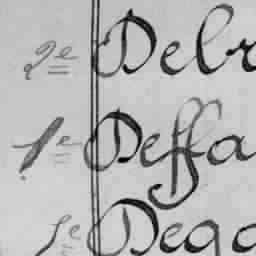 2e Debr
1e Deffa
1e Dega